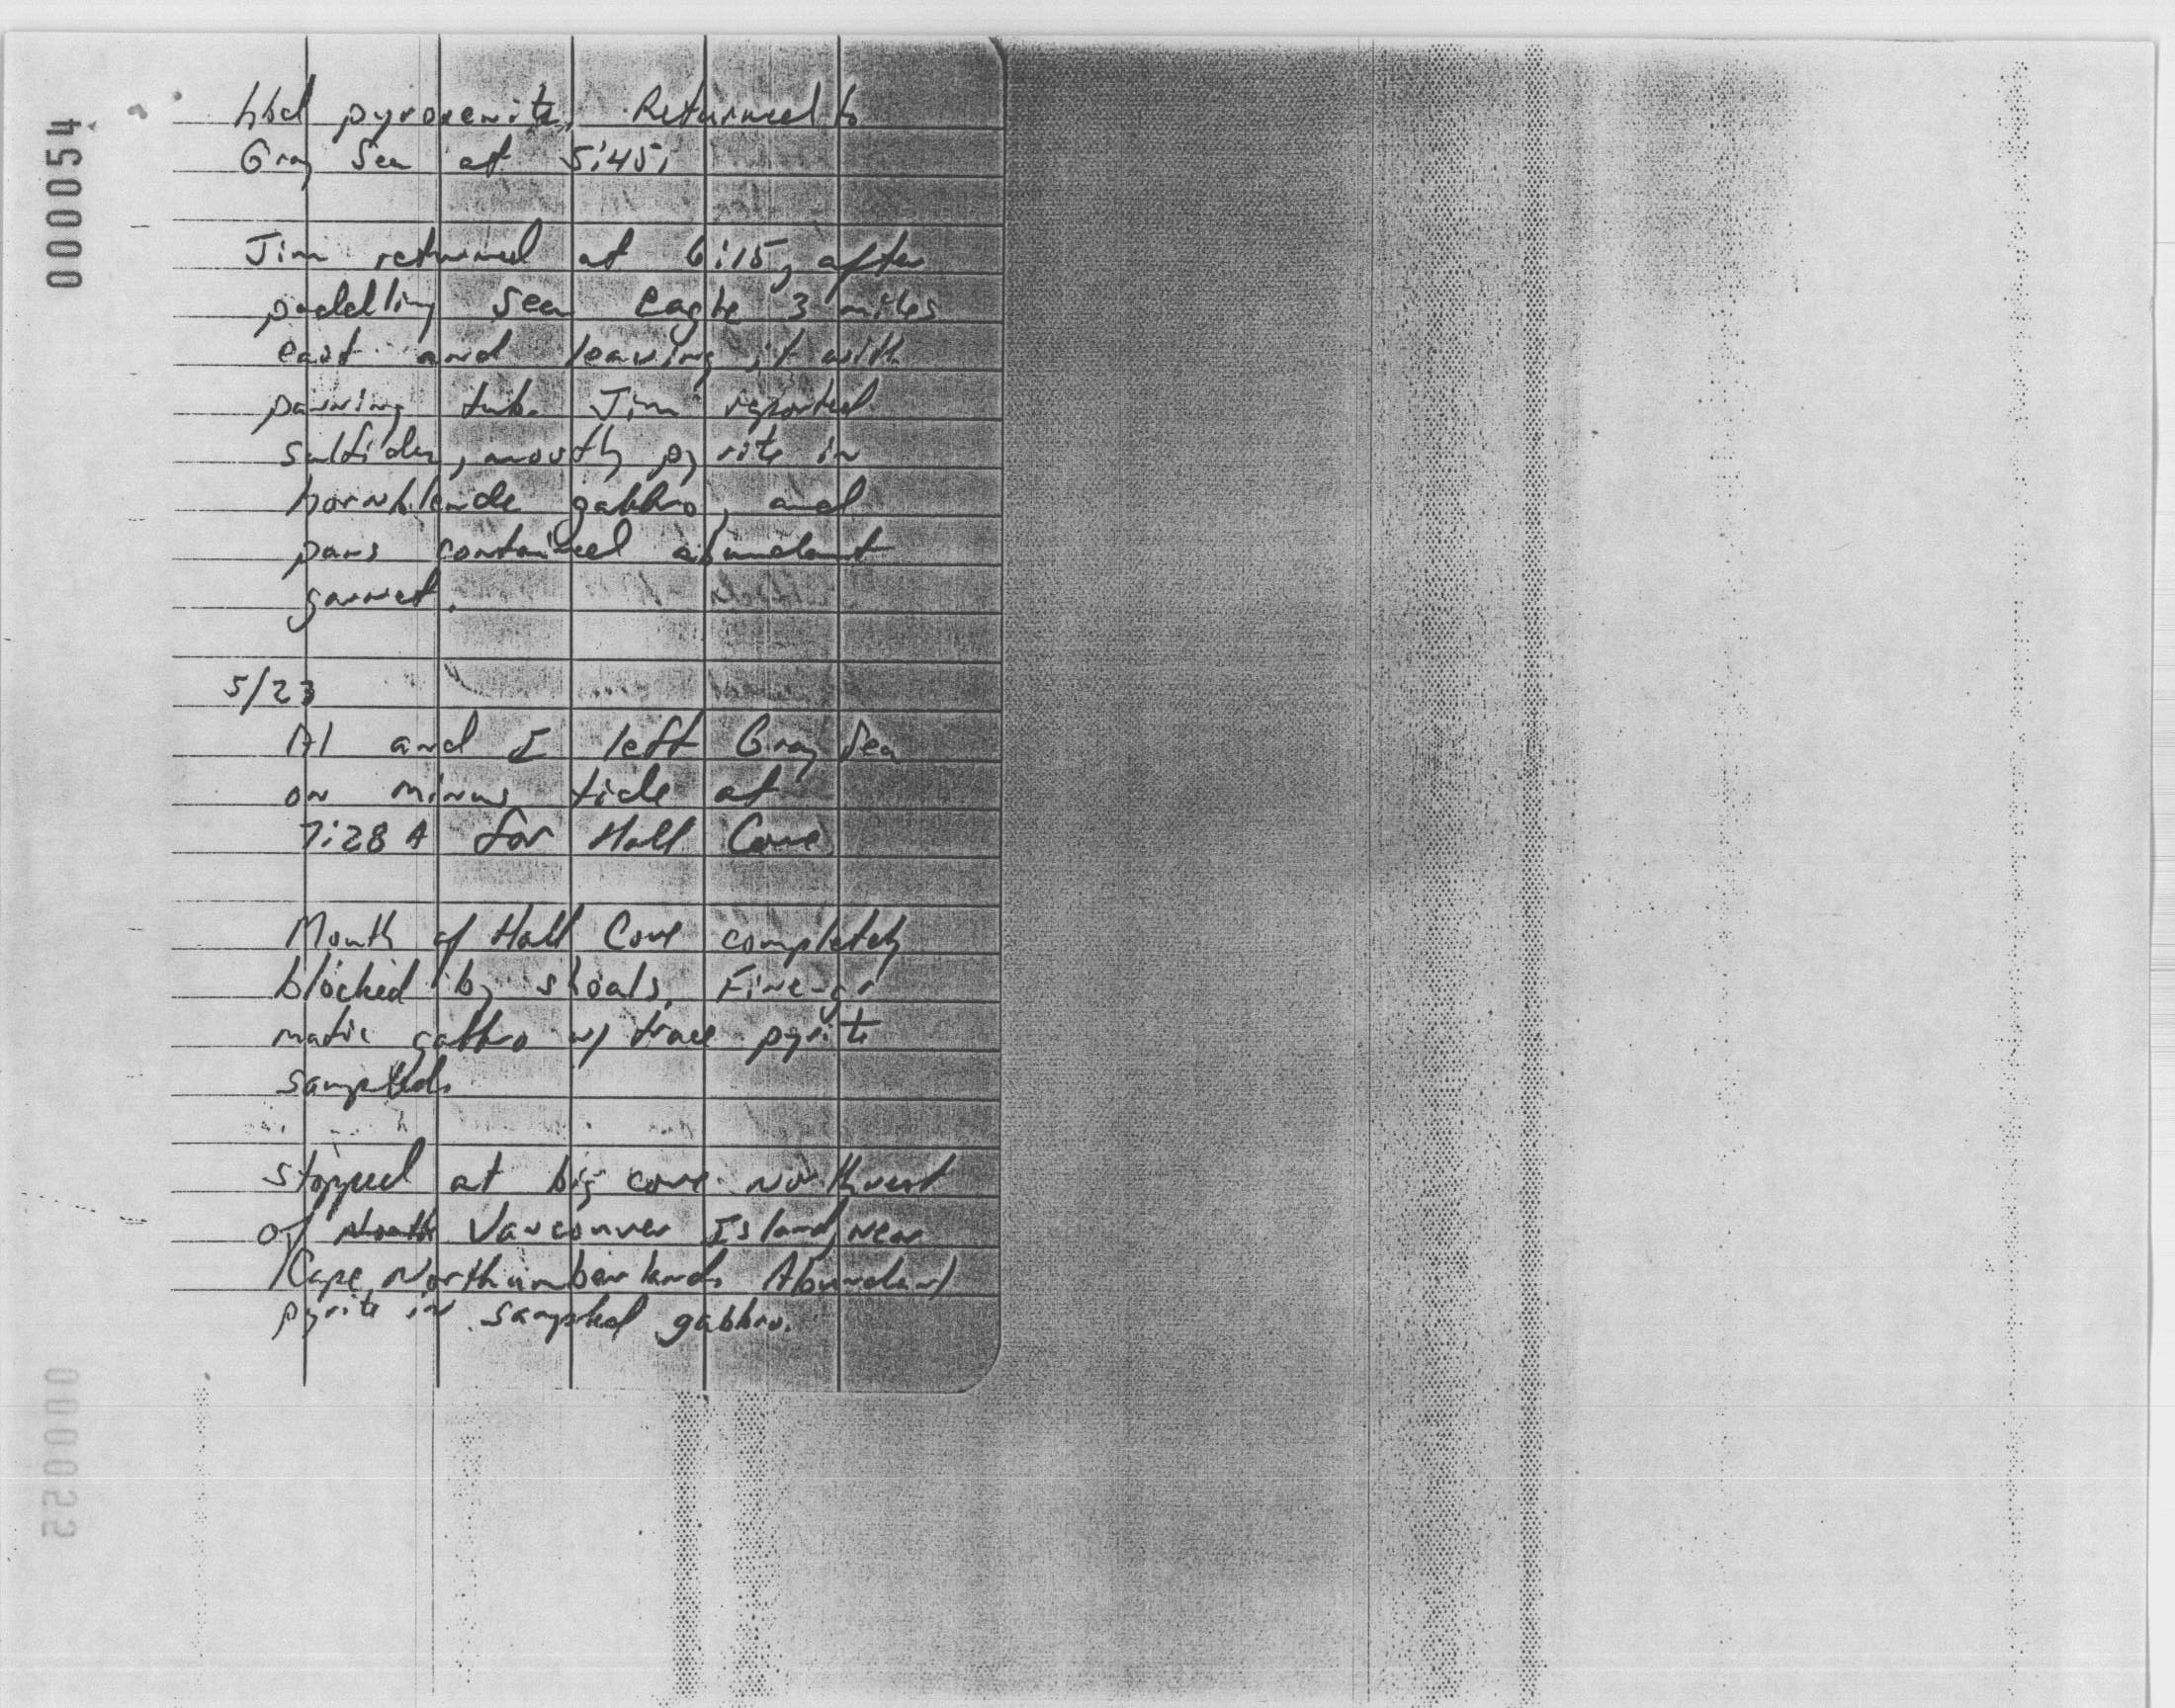 000054
hbd pyroxenite. Returned to
Gray Sea at 5:45.
Jim returned at 6:15, after
paddling Sea Eagle 3 miles
east and leaving it with
panning tub. Jim reported
sulfides, mostly pyrite in
hornblende gabbro, and
pans contained abundant
garnet.
5/23
Al and I left Gray Sea
on minus tide at
7:28 A for Hall Cove
Mouth of Hall Cove completely
blocked by shoals. Fine-gr
mafic gabbro w/ trace pyrite
sampled.
Stopped at big cove northwest
of Vancouver Island, near
Cape Northumberland. Abundant
pyrite in sampled gabbro.
000055